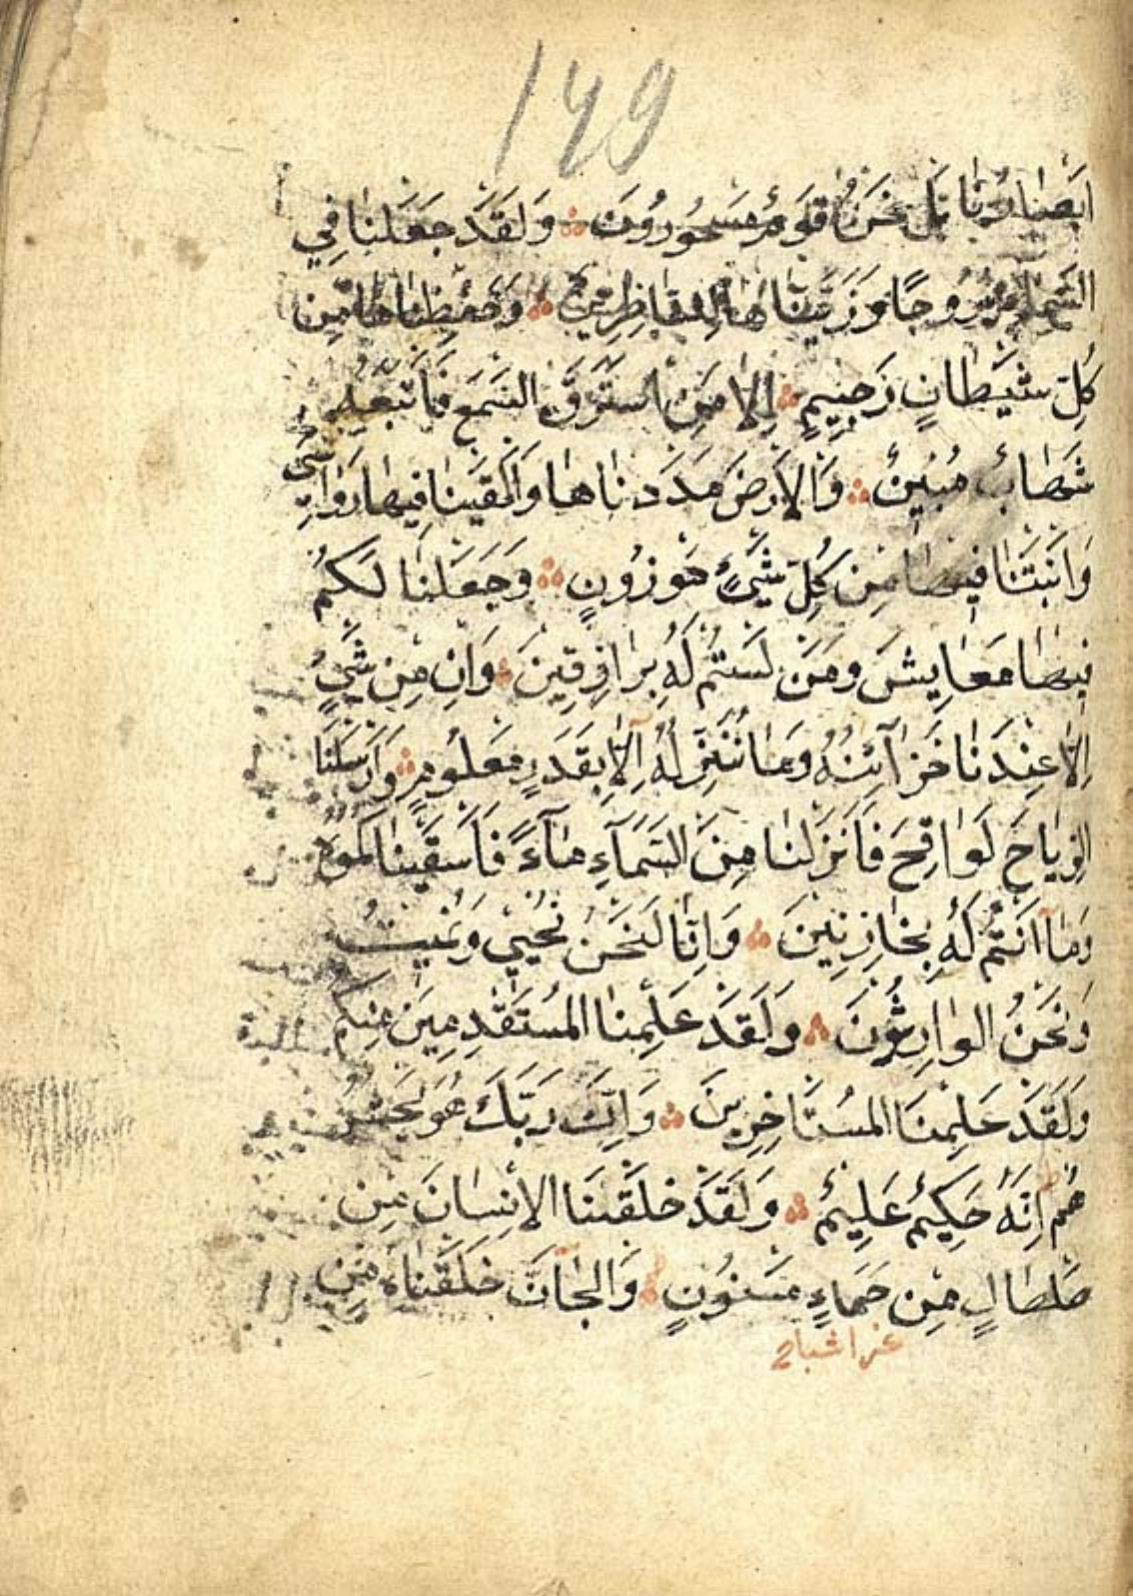 149
ابَصَارُنَا بَل نَحَنُ قَوَمٌ مَسَحُورُونَ وَلَقَدَ جَعَلنَا فِي
السَّمَآءِ بُرُوجًا وَزَيَّنَّاهَا لِلنَّاظِرِينَ وَحَفِظنَاهَا مِن
كُلِّ شَيطَانٍ رَجِيمٍ اِلاَّ مَنِ استَرَقَ السَّمعَ فَاَتبَعَهُ
شَهَابٌ مُبِينٌ وَالاَرضَ مَدَدنَاهَا وَاَلقَينَا فِيهَا رَوَاسِيَ
وَاَنبَتنَا فِيهَا مِن كُلِّ شَيءٍ مَوزُونٍ وَجَعَلنَا لَكُم
فِيهَا مَعَايِشَ وَمَن لَستُم لَهُ بِرَازِقِينَ وَاِن مِن شَيءٍ
اِلاَّ عِندَنَا خَزَآئِنُهُ وَمَا نُنَزِّلُهُ اِلاَّ بِقَدَرٍ مَعلُومٍ وَاَرسَلنَا
الرِّيَاحَ لَوَاقِحَ فَاَنزَلنَا مِنَ السَّمَآءِ مَآءً فَاَسقَينَاكُمُوهُ
وَمَآ اَنتُم لَهُ بِخَازِنِينَ وَاِنَّا لَنَحنُ نُحيِي وَنُمِيتُ
وَنَحنُ الوَارِثُونَ وَلَقَدَ عَلِمنَا المُستَقدِمِينَ مِنكُم
وَلَقَدَ عَلِمنَا المُستَاخِرِينَ وَاِنَّ رَبَّكَ هُوَ يَحشُرُ
هُم اِنَّهُ حَكِيمٌ عَلِيمٌ وَلَقَدَ خَلَقنَا الاِنسَانَ مِن
صَلصَالٍ مِن حَمَاءٍ مَسنُونٍ وَالجَآنَّ خَلَقنَاهُ مِن